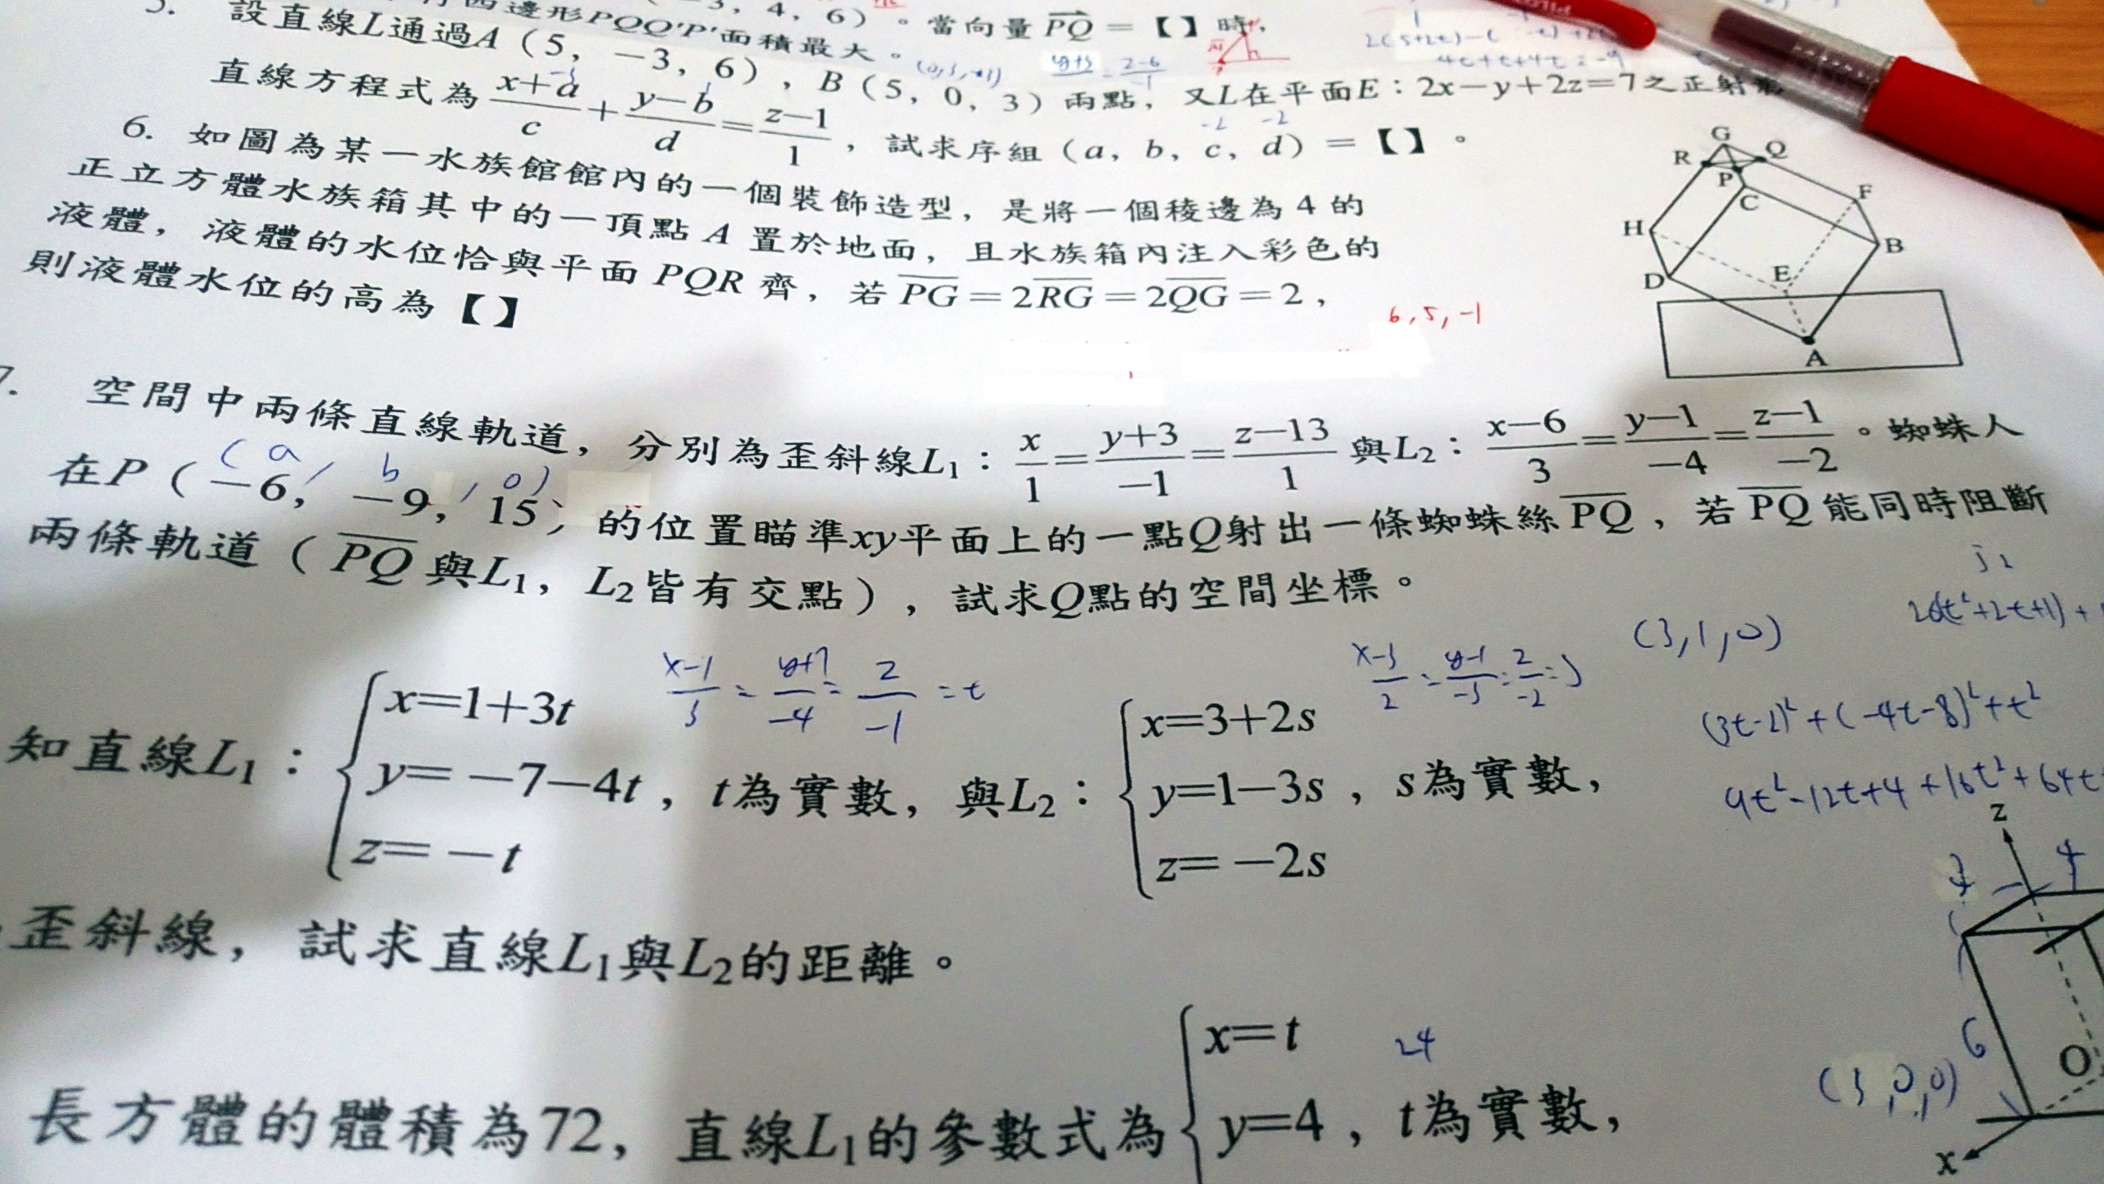 四邊形PQQ'P'面積最大。當向量PQ=【】時,
3,4,6)
設直線L通過A(5,-3,6),B(5,0,3)兩點,又L在平面E:2x-y+2z=7之正射影
直線方程式為 x+a/c + y-b/d = z-1/1,試求序組(a,b,c,d)=【】。
-2 -2
6. 如圖為某一水族館館內的一個裝飾造型,是將一個稜邊為4的
正立方體水族箱其中的一頂點A置於地面,且水族箱內注入彩色的
液體,液體的水位恰與平面PQR齊,若PG=2RG=2QG=2,
則液體水位的高為【】
G
R
Q
P
C
F
H
B
D
E
A
6,5,-1
7. 空間中兩條直線軌道,分別為歪斜線L1:x/1=y+3/-1=z-13/1與L2:x-6/3=y-1/-4=z-1/-2。蜘蛛人
(a, b, 0)
在P(-6,-9,15)的位置瞄準xy平面上的一點Q射出一條蜘蛛絲PQ,若PQ能同時阻斷
兩條軌道(PQ與L1,L2皆有交點),試求Q點的空間坐標。
(3,1,0)
x-1/3=y+7/-4=z/-1=t
x-3/2=y-1/-3=z/-2=s
知直線L1:{x=1+3t
y=-7-4t,t為實數,與L2:{x=3+2s
z=-t
y=1-3s,s為實數,
z=-2s
26(t²+2t+1)+
(3t-2)²+(-4t-8)²+t²
9t²-12t+4+16t²+64t
歪斜線,試求直線L1與L2的距離。
長方體的體積為72,直線L1的參數式為{x=t
y=4,t為實數,
24
z
4
6
(3,0,0)
O
x